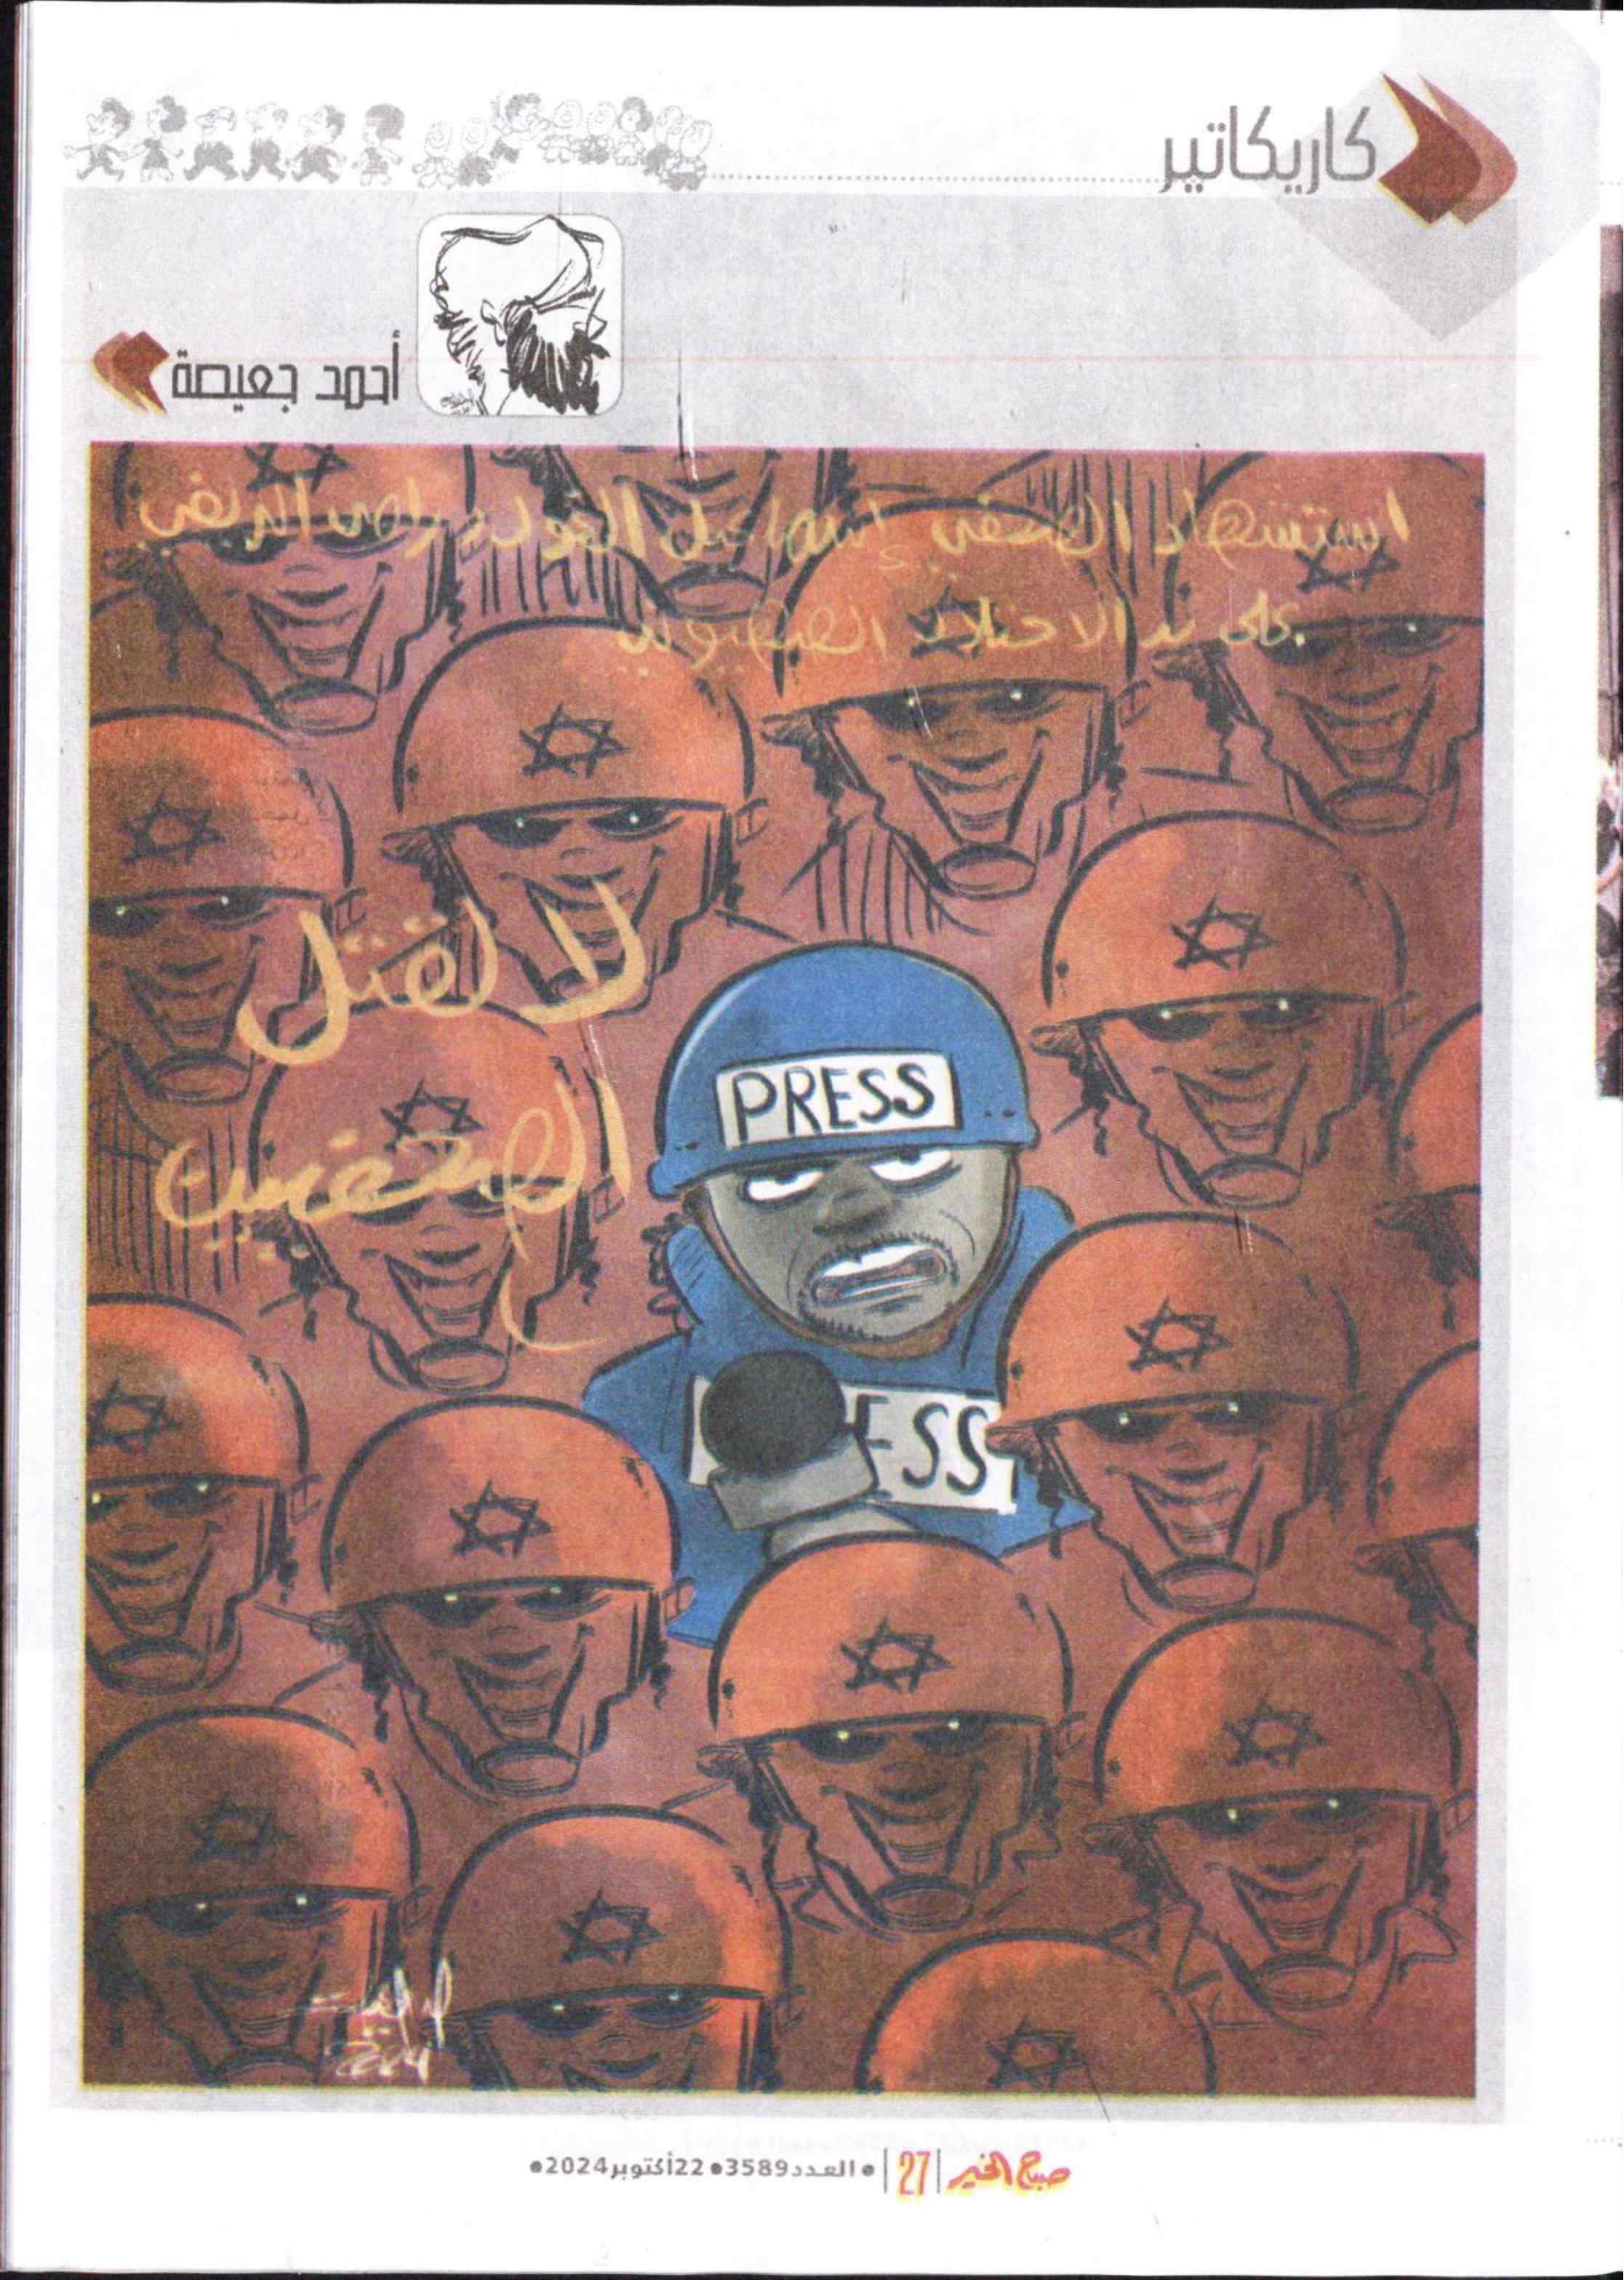 كاريكاتير
أحمد جعيصة
استشهاد الصحفي إسماعيل الغول ورامي الريفي
على يد الاحتلال الصهيوني
لا لقتل
الصحفيين
PRESS
ESS
2024
صباح الخير | 27 | • العدد 3589 • 22 أكتوبر 2024 •